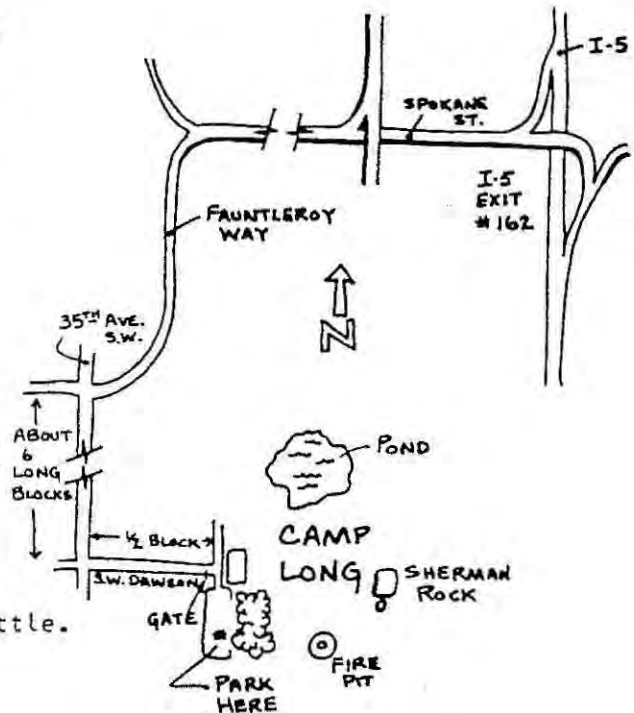 I-5
SPOKANE
ST.
I-5
EXIT
#162
FAUNTLEROY
WAY
N
35TH AVE.
S.W.
ABOUT
6
LONG
BLOCKS
POND
½ BLOCK
CAMP
LONG
S.W. DAWSON
SHERMAN
ROCK
GATE
ttle.
FIRE
PIT
PARK
HERE